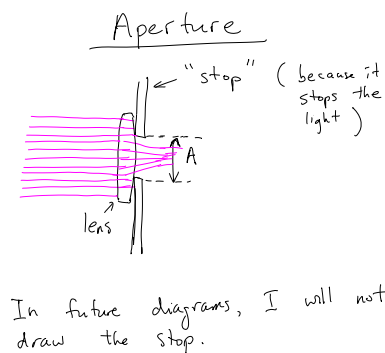 Aperture
"stop" (because it
stops the
light)
A
lens
In future diagrams, I will not
draw the stop.